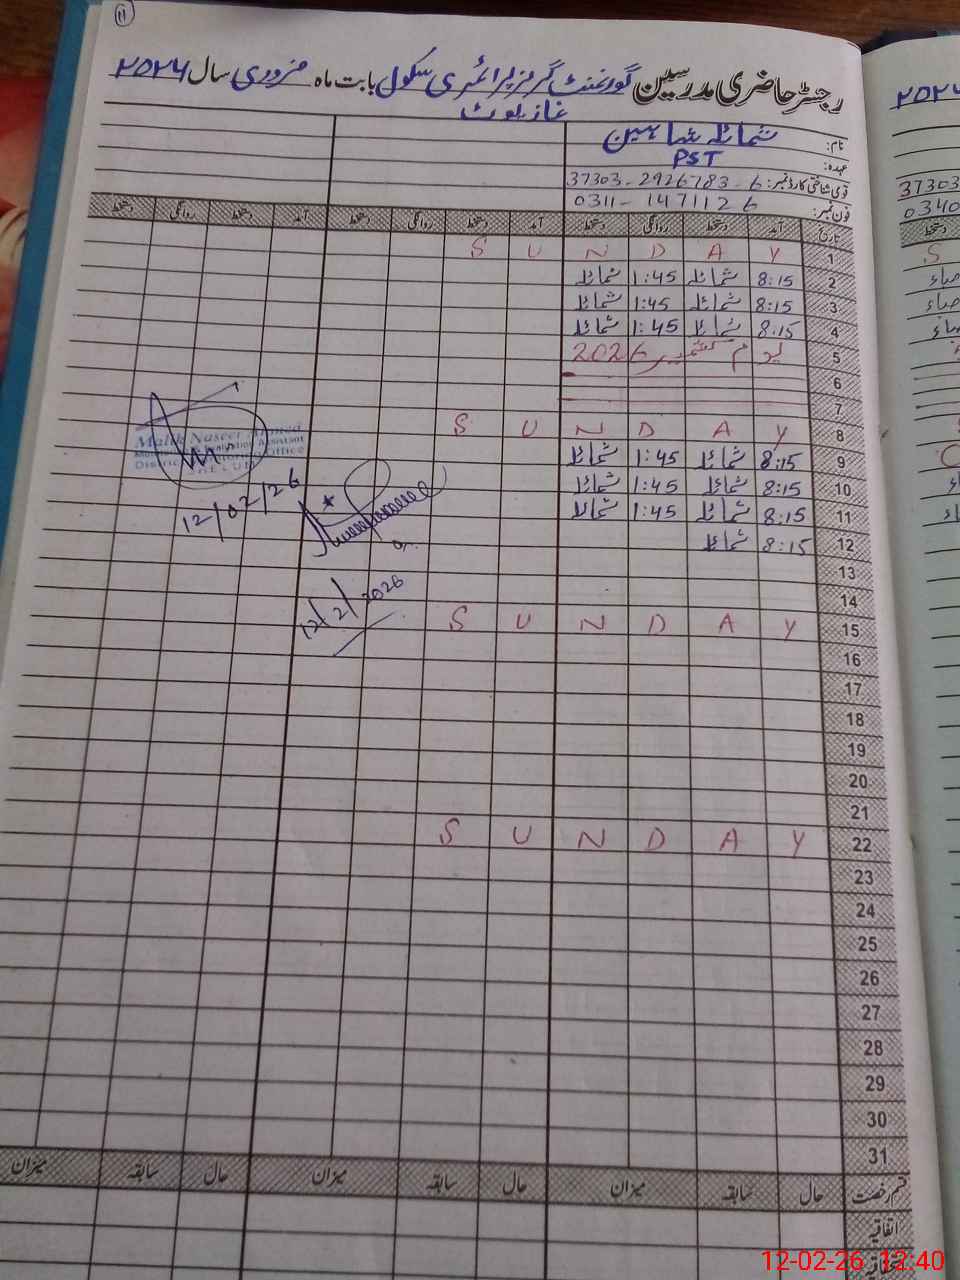 11
رجسٹر حاضری مدرسین گورنمنٹ گرلز پرائمری سکول بابت ماہ فروری سال ۲۰۲۶
نام: شمائلہ شاہین
عہدہ: PST
قومی شناختی کارڈ نمبر: 37303-2926783-6
فون نمبر: 0311-1471126
تاریخ آمد دستخط روانگی دستخط آمد دستخط روانگی دستخط آمد دستخط روانگی دستخط
1 S U N D A Y
2 8:15 شمائلہ 1:45 شمائلہ
3 8:15 شمائلہ 1:45 شمائلہ
4 8:15 شمائلہ 1:45 شمائلہ
5 یوم کشمیر 2026
6
7
8 S U N D A Y
9 8:15 شمائلہ 1:45 شمائلہ
10 8:15 شمائلہ 1:45 شمائلہ
11 8:15 شمائلہ 1:45 شمائلہ
12 8:15 شمائلہ
13
14
15 S U N D A Y
16
17
18
19
20
21
22 S U N D A Y
23
24
25
26
27
28
29
30
31
قسم رخصت حال سابقہ میزان حال سابقہ میزان حال سابقہ میزان
اتفاقیہ
Malik Naseer Ahmed
12/02/26
12/2/2026
۲۰۲۶
37303
0340
دستخط
S
12-02-26 12:40